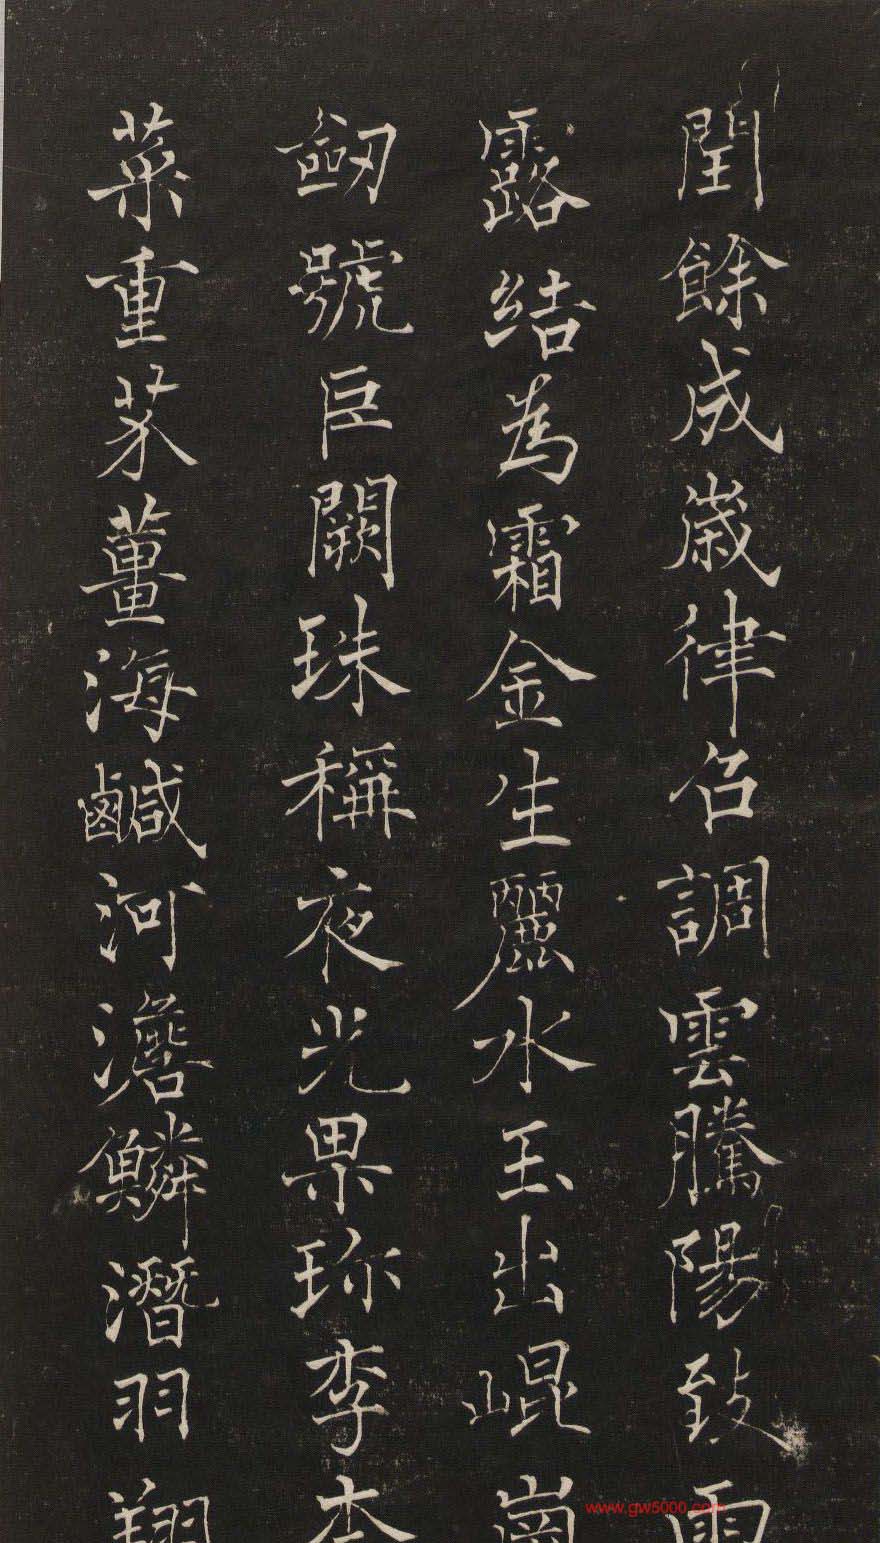 閏餘成歲律召調雲騰陽致雨
露結為霜金生麗水玉出崐崗
劒號巨闕珠稱夜光果珎李柰
菜重芥薑海鹹河澹鱗潛羽翔
www.gw5000.com